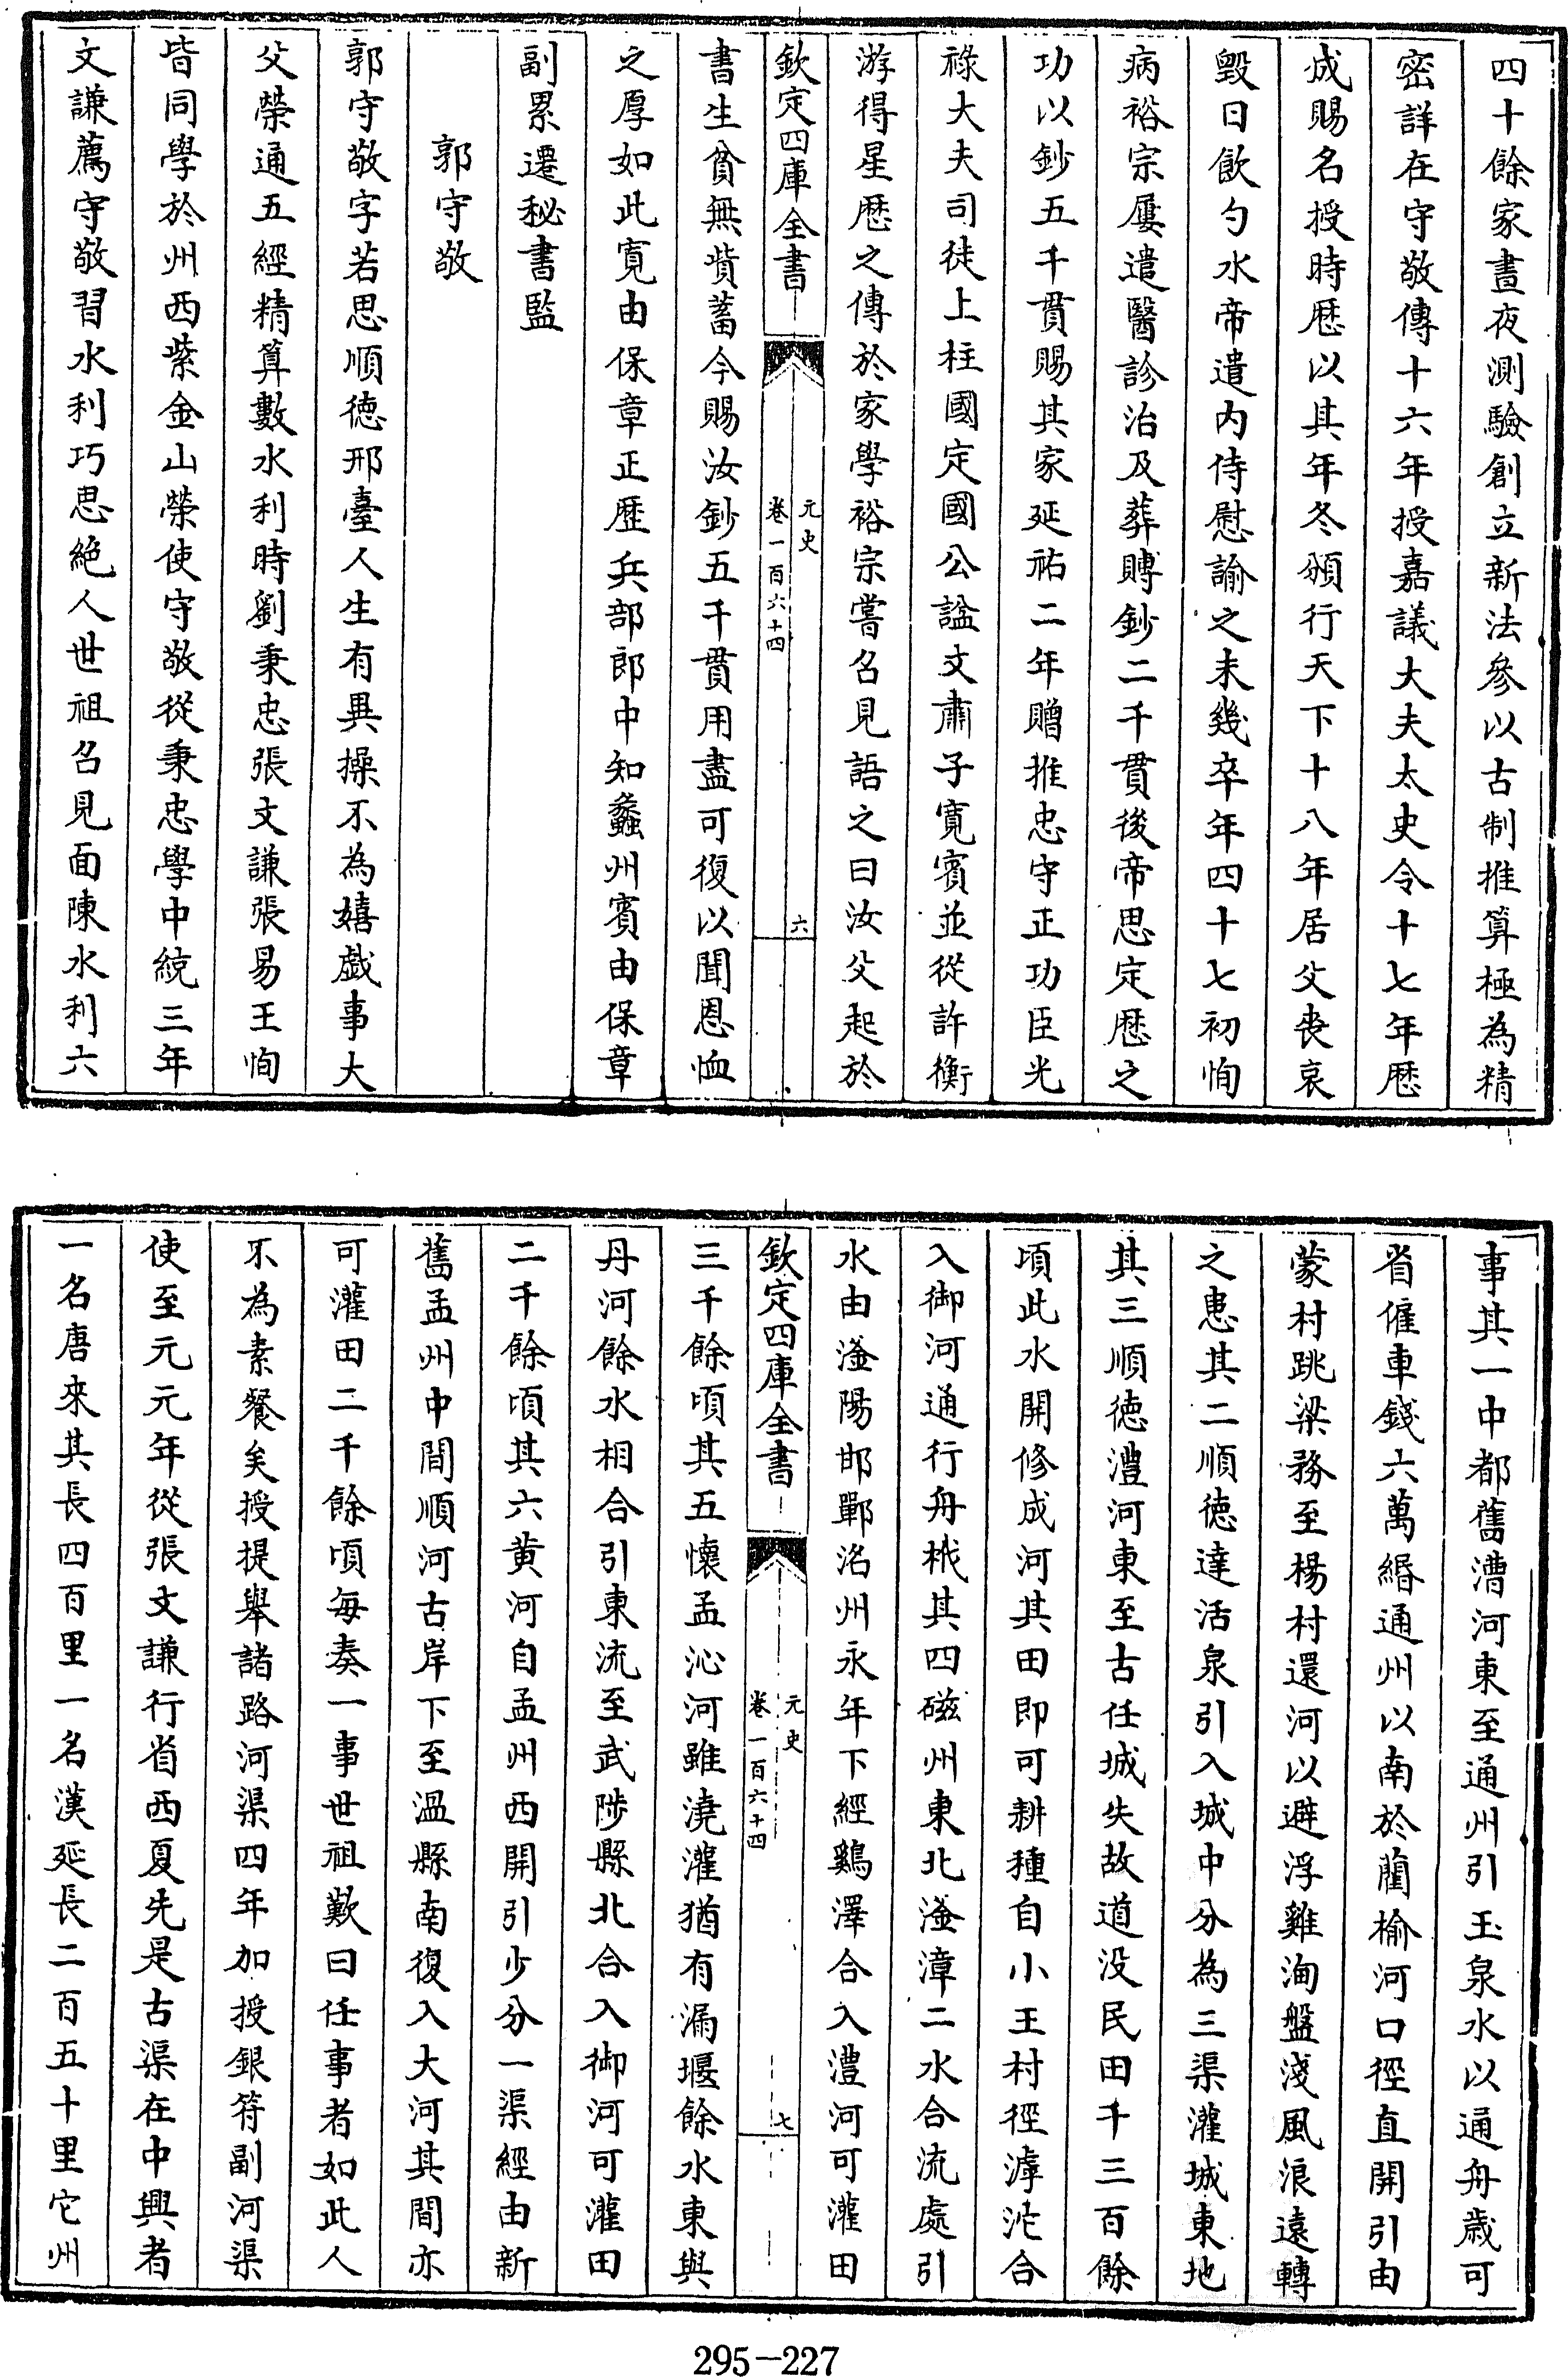 四十餘家晝夜測驗創立新法參以古制推算極為精
密詳在守敬傳十六年授嘉議大夫太史令十七年厯
成賜名授時厯以其年冬頒行天下十八年居父喪哀
毀日飲勺水帝遣内侍慰諭之未幾卒年四十七初恂
病裕宗屢遣醫診治及葬賻鈔二千貫後帝思定厯之
功以鈔五千貫賜其家延祐二年贈推忠守正功臣光
祿大夫司徒上柱國定國公諡文肅子寛賓並從許衡
游得星厯之傳於家學裕宗嘗召見語之曰汝父起於
欽定四庫全書
元史
卷一百六十四
六
書生貧無貲蓄今賜汝鈔五千貫用盡可復以聞恩恤
之厚如此寛由保章正歴兵部郎中知蠡州賓由保章
副累遷秘書監
郭守敬
郭守敬字若思順徳邢臺人生有異操不為嬉戯事大
父榮通五經精算數水利時劉秉忠張文謙張易王恂
皆同學於州西紫金山榮使守敬從秉忠學中統三年
文謙薦守敬習水利巧思絶人世祖召見面陳水利六
事其一中都舊漕河東至通州引玉泉水以通舟歲可
省僱車錢六萬緡通州以南於藺榆河口徑直開引由
蒙村跳梁務至楊村還河以避浮雞洵盤淺風浪遠轉
之患其二順徳達活泉引入城中分為三渠灌城東地
其三順徳澧河東至古任城失故道没民田千三百餘
頃此水開修成河其田即可耕種自小王村徑滹沱合
入御河通行舟栰其四磁州東北滏漳二水合流處引
水由滏陽邯鄲洺州永年下經鷄澤合入澧河可灌田
欽定四庫全書
元史
卷一百六十四
七
三千餘頃其五懷孟沁河雖澆灌猶有漏堰餘水東與
丹河餘水相合引東流至武陟縣北合入御河可灌田
二千餘頃其六黄河自孟州西開引少分一渠經由新
舊孟州中間順河古岸下至温縣南復入大河其間亦
可灌田二千餘頃每奏一事世祖歎曰任事者如此人
不為素餐矣授提舉諸路河渠四年加授銀符副河渠
使至元元年從張文謙行省西夏先是古渠在中興者
一名唐來其長四百里一名漢延長二百五十里它州
295-227